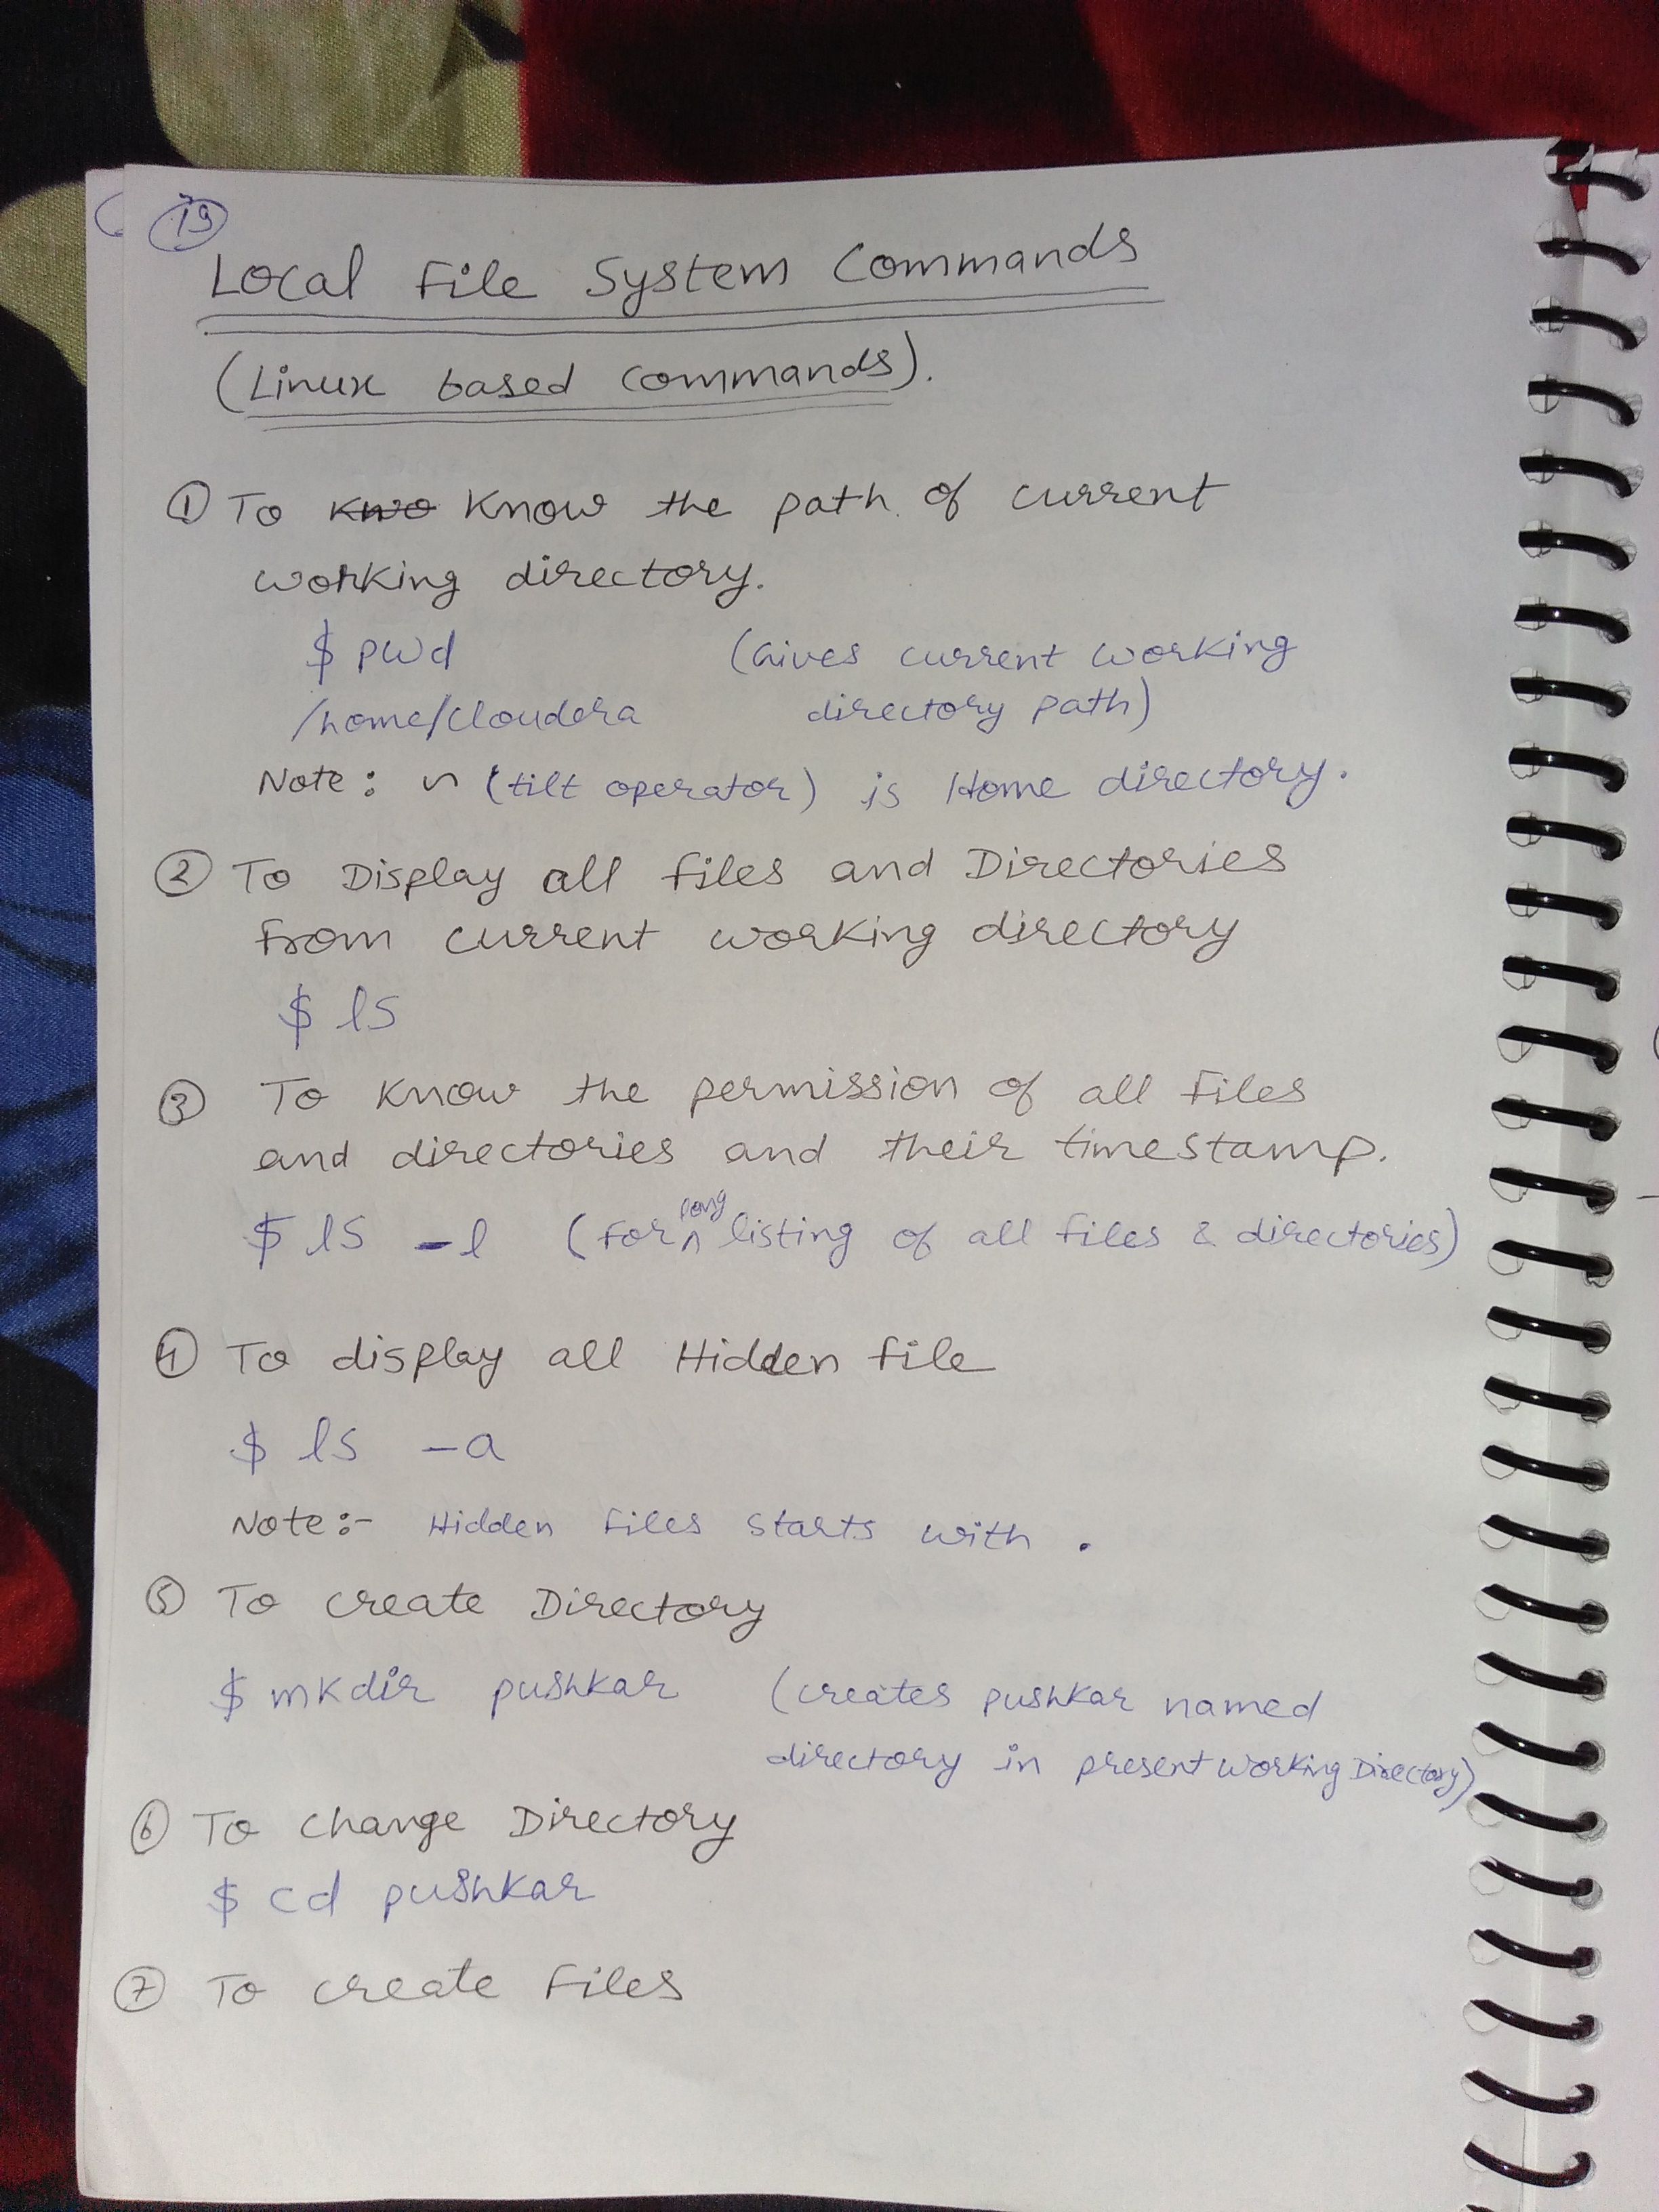 19
Local File System Commands
(Linux based commands).
① To kwo Know the path of current
working directory.
$ pwd (Gives current working
/home/cloudera directory path)
Note: ~ (tilt operator) is Home directory.
② To Display all files and Directories
from current working directory
$ ls
③ To know the permission of all files
and directories and their timestamp.
$ ls -l (for long listing of all files & directories)
④ To display all Hidden file
$ ls -a
Note:- Hidden files starts with .
⑤ To create Directory
$ mkdir pushkar (creates pushkar named
directory in present working Directory)
⑥ To change Directory
$ cd pushkar
⑦ To create Files